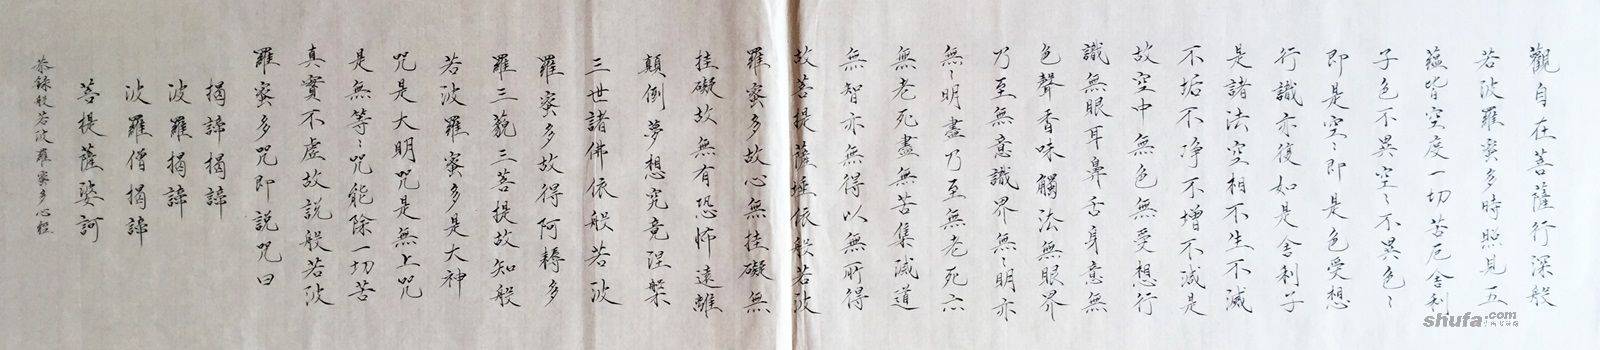 觀自在菩薩行深般
若波羅蜜多時照見五
蘊皆空度一切苦厄舍利
子色不異空〻不異色〻
即是空〻即是色受想
行識亦復如是舍利子
是諸法空相不生不滅
不垢不净不增不減是
故空中無色無受想行
識無眼耳鼻舌身意無
色聲香味觸法無眼界
乃至無意識界無〻明亦
無〻明盡乃至無老死亦
無老死盡無苦集滅道
無智亦無得以無所得
故菩提薩埵依般若波
羅蜜多故心無挂礙無
挂礙故無有恐怖遠離
顛倒夢想究竟涅槃
三世諸佛依般若波
羅蜜多故得阿耨多
羅三藐三菩提故知般
若波羅蜜多是大神
咒是大明咒是無上咒
是無等〻咒能除一切苦
真實不虛故說般若波
羅蜜多咒即說咒曰
揭諦揭諦
波羅揭諦
波羅僧揭諦
菩提薩婆訶
恭錄般若波羅蜜多心經
shufa.com